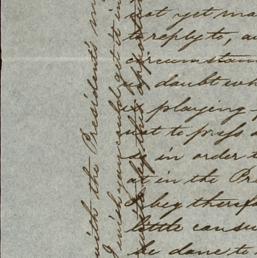 not yet ma
to reply to, a
circumstan
no doubt wh
is playing
not to press
so in order t
at in the Pre
I beg theref
little can su
be done to
with the President's
I wish you could get it in